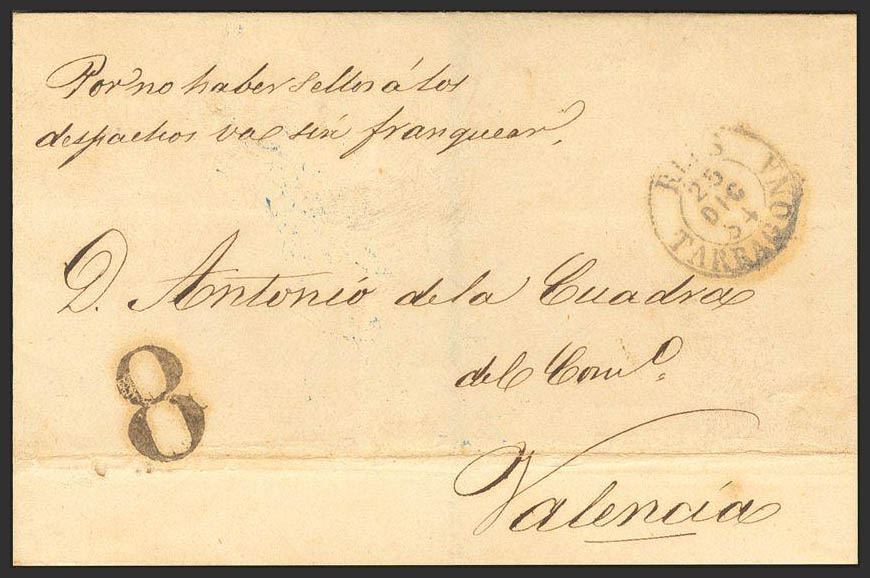 Por no haber sellos á los
despachos va sin franquear.
REUS
25
DIC
54
TARRAGONA
D. Antonio de la Cuadra
del Com.º
8
Valencia